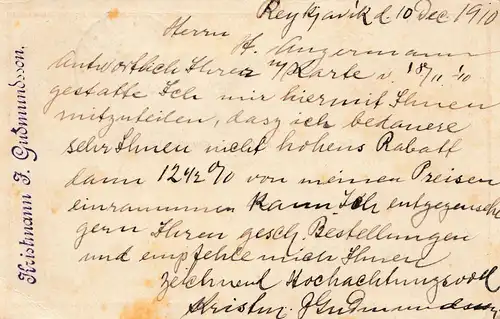 Reykjavik d. 10 Dec. 1910
Herrn
H. Angermann
Antwortlich Ihrer w/Karte v. 18/11 10
gestatte Ich mir hiermit Ihnen
mitzuteilen, dasz ich bedauere
sehr Ihnen nicht hohens Rabatt
dann 12 1/2 % von meinen Preisen
einraumen kann. Ich entgegensehe
gern Ihren gesch. Bestellungen
und empfehle mich Ihnen
Zeichnend Hochachtungsvoll
Kristm. J Gudmundsson
Kristmann J. Guðmundsson.